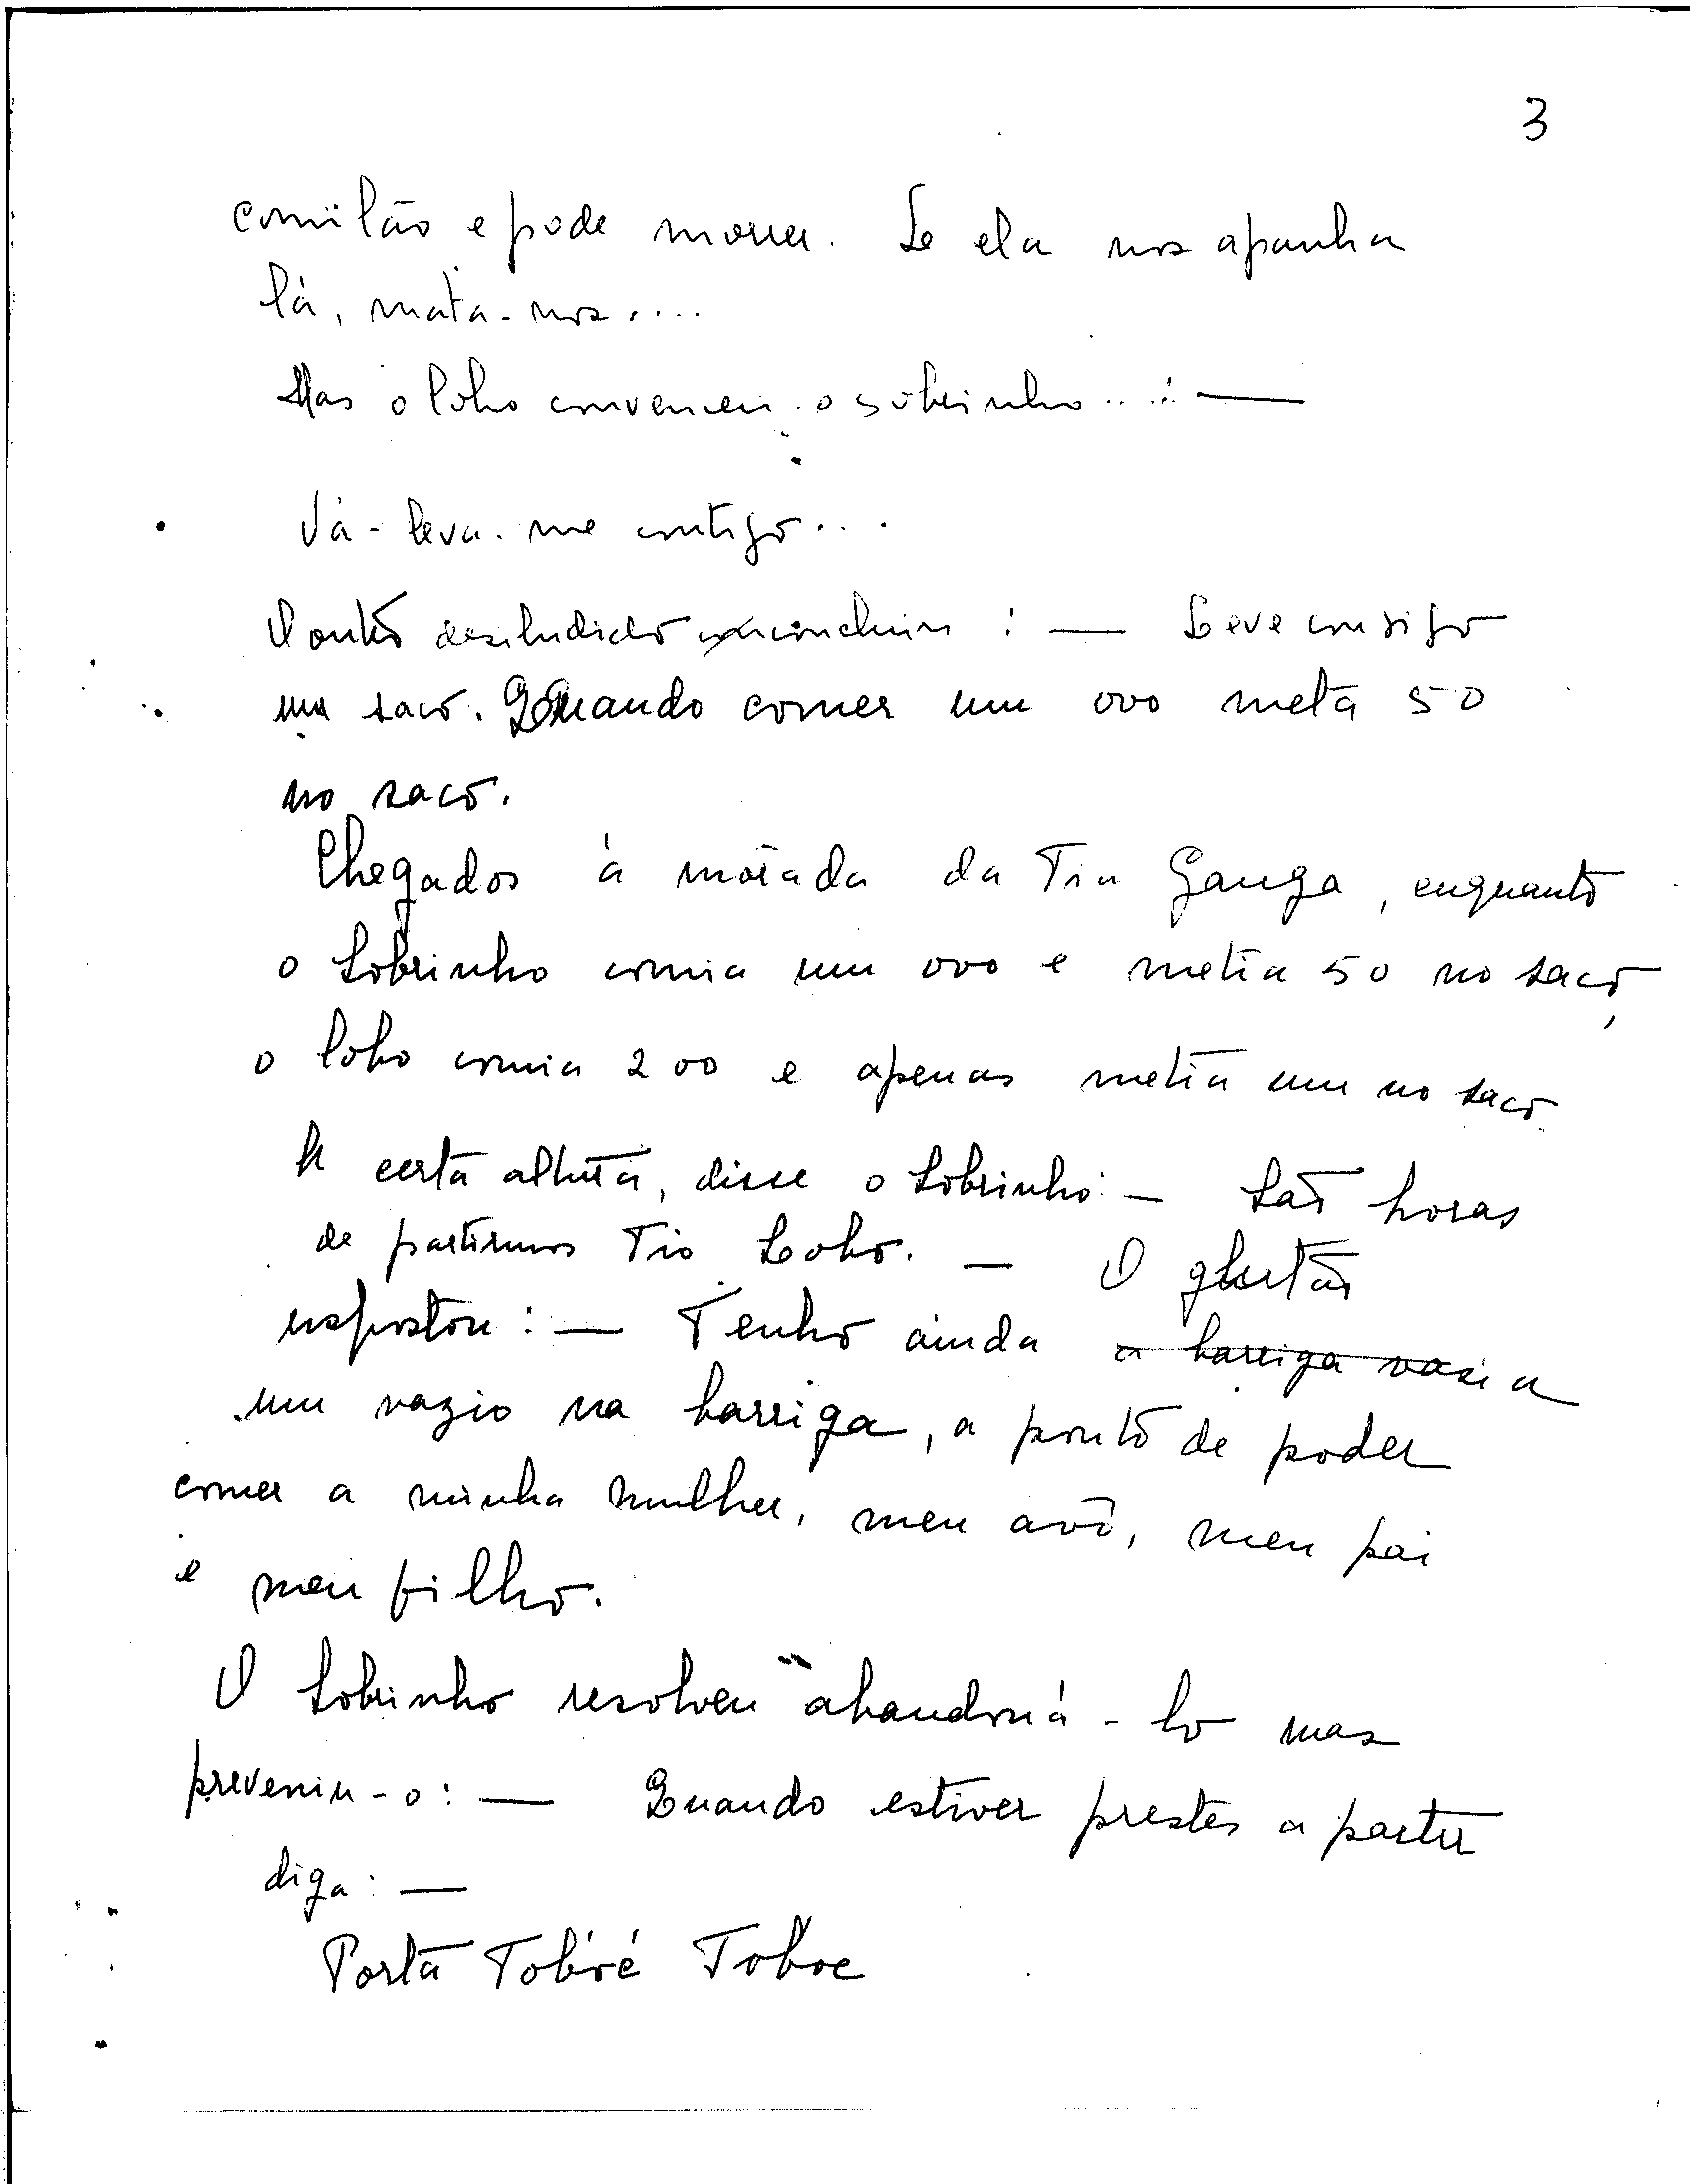 3
comilão e pode morrer. Se ela nos apanha
lá, mata-nos....
Mas o lobo convenceu o sobrinho...: —
Vá - leva-me contigo...
O outro desiludido concluiu : — Leve consigo
um saco. Quando comer um ovo meta 50
no saco.
Chegados à morada da Tia Ganga, enquanto
o Sobrinho comia um ovo e metia 50 no saco,
o lobo comia 200 e apenas metia um no saco
A certa altura, disse o Sobrinho: — São horas
de partirmos Tio Lobo. — O glutão
respostou : — Tenho ainda a barriga vazia
um vazio na barriga, a ponto de poder
comer a minha mulher, meu avô, meu pai
e meu filho.
O Sobrinho resolveu abandoná-lo mas
preveniu-o : — Quando estiver prestes a partir
diga : —
Porta Tobóé Toboe